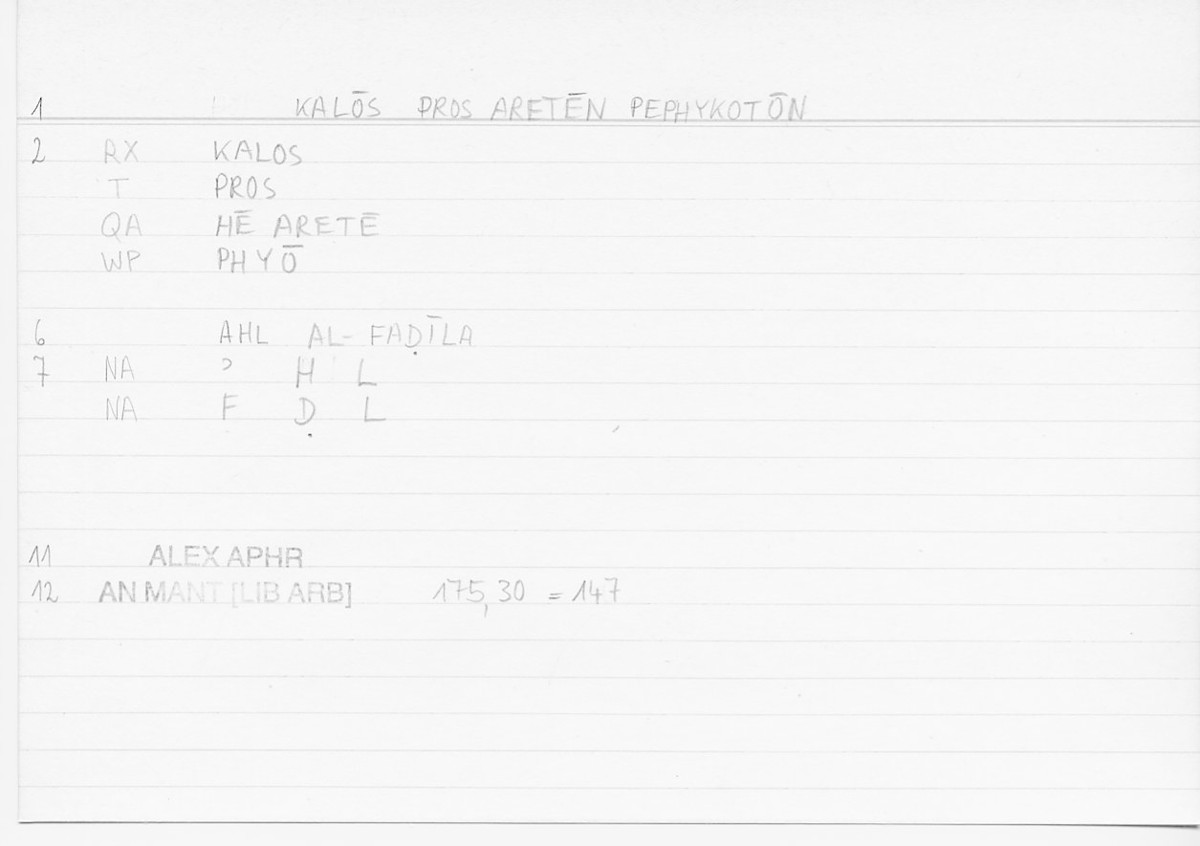 1 KALŌS PROS ARETĒN PEPHYKOTŌN
2 RX KALOS
T PROS
QA HĒ ARETĒ
WP PHYŌ
6 AHL AL-FAḌĪLA
7 NA ʾ H L
NA F Ḍ L
11 ALEX APHR
12 AN MANT [LIB ARB] 175,30 = 147